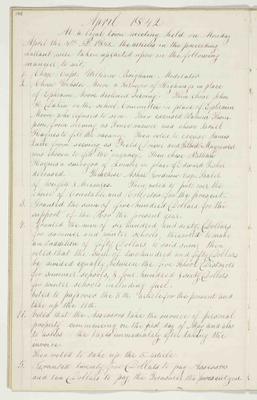 April 1842
At a legal town meeting held on Monday
April the 4th 1842 the articles in the preceding
warrant were taken up acted upon in the following
manner to wit.
1. Chose Capt. William Bingham Moderator
2. Chose Webster More a Surveyor of Highways in place
of Ephraim More declined serving. Then chose John
on the School Committee in place of Ephraim
More who refused to serve. Then excused
from serving as and chose Israel
to fill the vacancy. Then voted to excuse
from serving as Field Driver and
was chosen to fill the vacancy. Then chose Nathan
surveyor of lumber in place of
deceased. Likewise Sealer
of weights & measures. Then voted to put
of Constable and Collector for the present.
3. Granted the sum of five hundred Dollars for the
support of the Poor the present year.
4. Granted the sum of six hundred and sixty Dollars
for summer and winter schools. Then voted to make
an addition of fifty Dollars to said sum. Then
voted that the sum of two hundred and fifty Dollars
be divided equally between the five School Districts
for summer schools, & four hundred & sixty Dollars
for winter schools including fuel.
Voted to pass over the 5th article for the present and
take up the 11th.
11. Voted that the Assessors take the invoice of personal
property commencing on the first day of May and also
to assess the taxes immediately after taking the
invoice
Then voted to take up the 5 article
5. Granted twenty five Dollars to pay Assessors
and ten Dollars to pay the Treasurer the present year